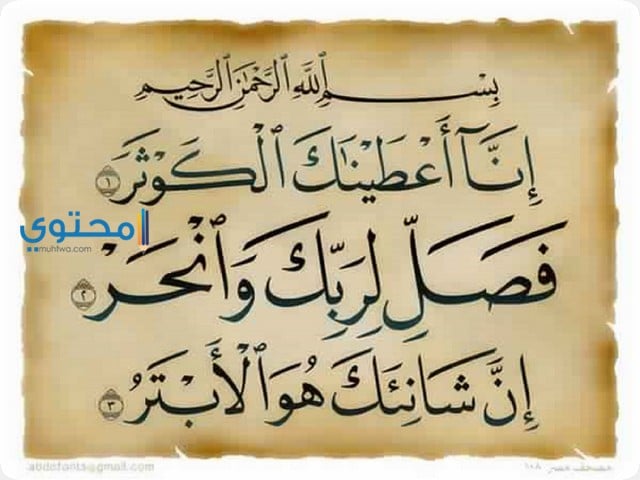 بِسْمِ ٱللَّهِ ٱلرَّحْمَٰنِ ٱلرَّحِيمِ
إِنَّآ أَعْطَيْنَٰكَ ٱلْكَوْثَرَ ١
فَصَلِّ لِرَبِّكَ وَٱنْحَرْ ٢
إِنَّ شَانِئَكَ هُوَ ٱلْأَبْتَرُ ٣
محتوى
muhtwa.com
abdofonts@gmail.com
مصحف مصر ١٠٨